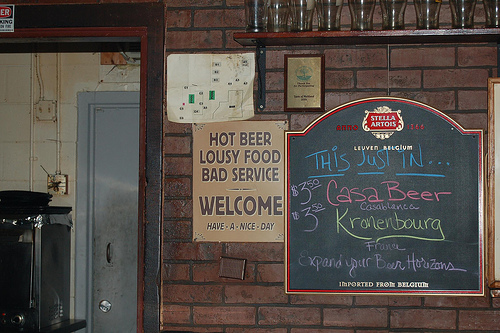 ER
KING
HOT BEER
LOUSY FOOD
BAD SERVICE
WELCOME
HAVE - A - NICE - DAY
STELLA
ARTOIS
ANNO
LEUVEN BELGIUM
THiS JuST IN...
$3.50 CasaBeer
Casablanca
$3.50 Kronenbourg
France
Expand your Beer Horizons
IMPORTED FROM BELGIUM